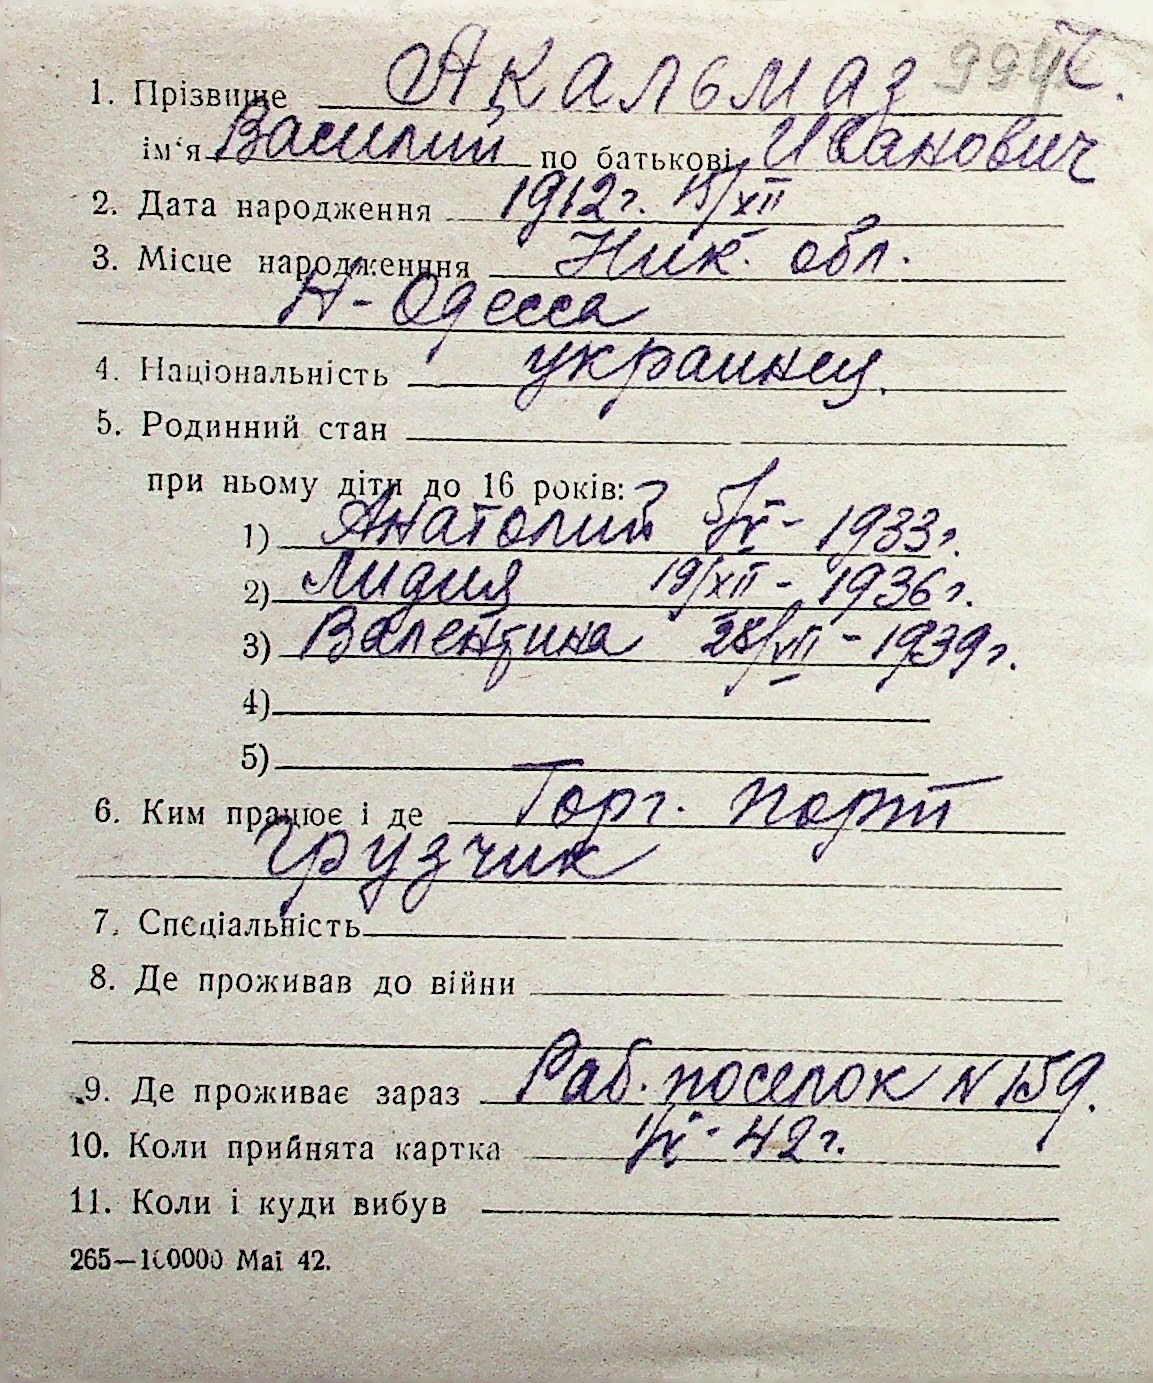 994
1. Прізвище Акальмаз
ім‘я Василий по батькові Иванович
2. Дата народження 1912г. 15/XII
3. Місце народженння Ник. обл.
Н-Одесса
4. Національність украинец.
5. Родинний стан
при ньому діти до 16 років:
1) Анатолий - 1933г.
2) Лидия 19/XII - 1936г.
3) Валентина 28/VII - 1939г.
4)
5)
6. Ким працює і де Торг. порт
грузчик
7. Спєціальність
8. Де проживав до війни
9. Де проживає зараз Раб. поселок N 159.
10. Коли прийнята картка 42г.
11. Коли і куди вибув
265—100000 Mai 42.